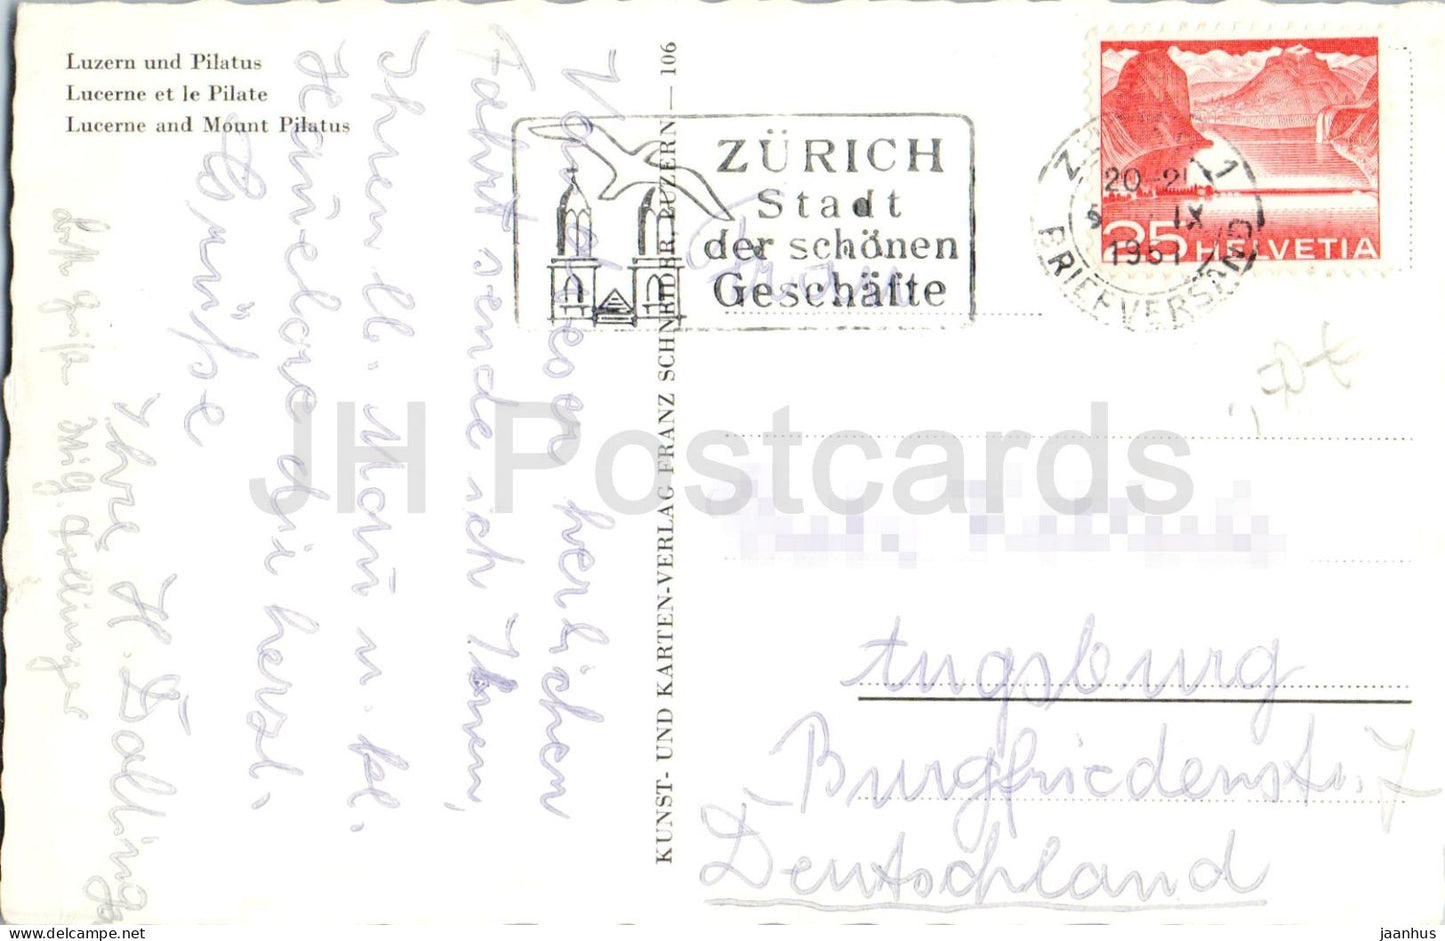 Luzern und Pilatus
Lucerne et le Pilate
Lucerne and Mount Pilatus
Von dieser herrlichen
Fahrt sende ich Ihnen,
Ihrem lb. Mann u. kl.
Hannelore die herzl.
Grüße
Ihre H. Dollinger
KUNST- UND KARTEN-VERLAG FRANZ SCHNEIDER, LUZERN — 106
ZÜRICH
Stadt
der schönen
Geschäfte
20-2
IX
1951
BRIEFVERSAND
35 HELVETIA
Frau
Augsburg
Burgfriedenstr. 7
Deutschland
JH Postcards
jaanhus